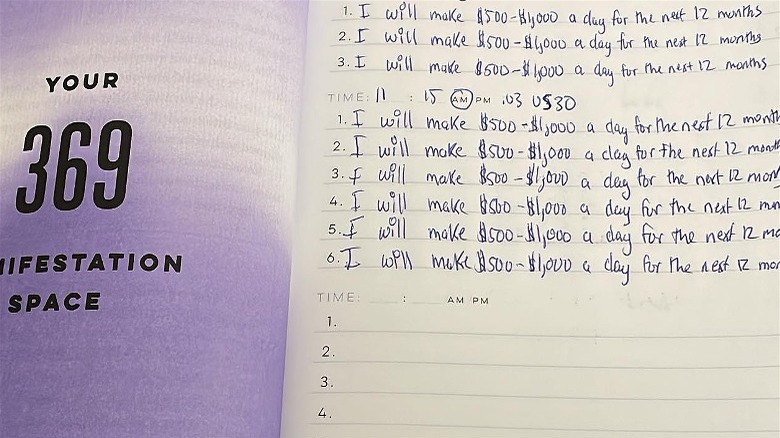 YOUR
369
NIFESTATION
SPACE
1. I will make $500-$1,000 a day for the next 12 months
2. I will make $500-$1,000 a day for the next 12 months
3. I will make $500-$1,000 a day for the next 12 months
TIME: 11 : 15 AM PM
1. I will make $500-$1,000 a day for the next 12 month
2. I will make $500-$1,000 a day for the next 12 month
3. I will make $500-$1,000 a day for the next 12 mon
4. I will make $500-$1,000 a day for the next 12 mon
5. I will make $500-$1,000 a day for the next 12 mo
6. I will make $500-$1,000 a day for the next 12 mo
TIME: : AM PM
1.
2.
3.
4.